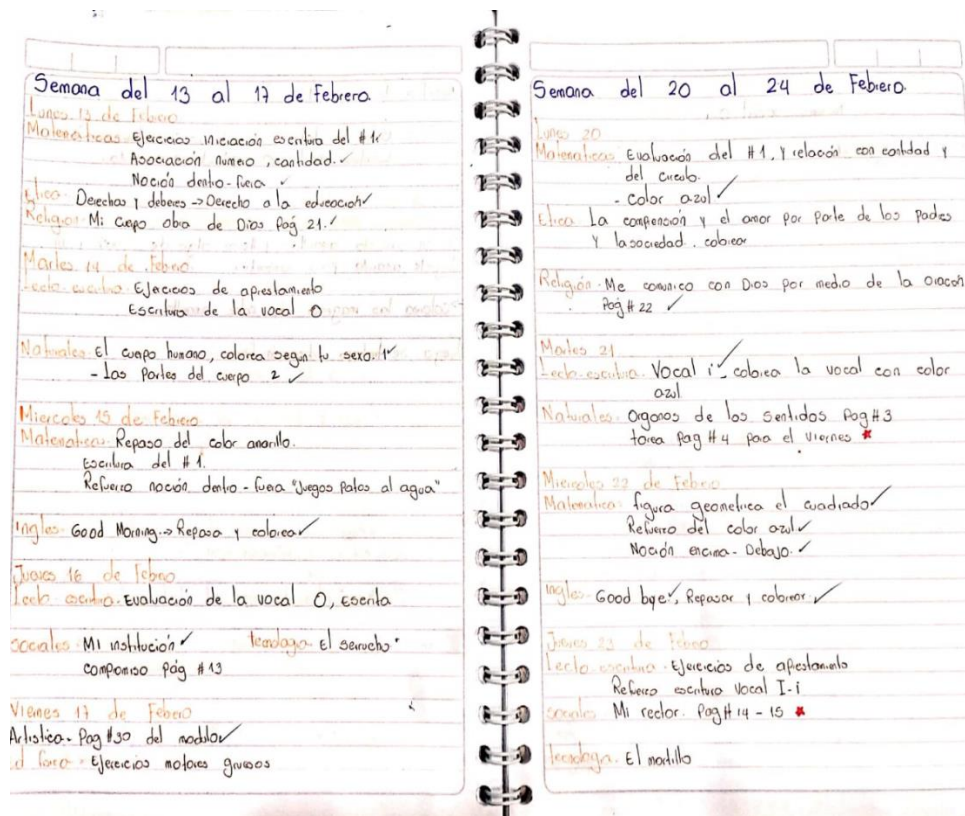 Semana del 13 al 17 de Febrero.
Lunes 13 de Febrero
Matematicas Ejercicios iniciación escritura del #1✓
Asociación numero, cantidad.✓
Noción dentro-fuera ✓
Etica. Derechos y deberes → Derecho a la educación✓
Religion. Mi cuerpo obra de Dios Pág 21.✓
Martes 14 de Febrero
Lecto-escritura. Ejercicios de aprestamiento
Escritura de la vocal O
Naturales. El cuerpo humano, colorea según tu sexo. 1✓
- Las Partes del cuerpo 2 ✓
Miercoles 15 de Febrero
Matematicas. Repaso del color amarillo.
Escritura del #1.
Refuerzo noción dentro-fuera "Juegos Patos al agua"
Ingles. Good Morning.→ Repasa y colorea✓
Jueves 16 de Febrero
Lecto escritura. Evaluación de la vocal O, Escrita
Sociales. Mi institución✓ Tecnologia. El serrucho
compromiso pág #13
Viernes 17 de Febrero
Artistica. Pag #30 del modulo✓
Ed fisica. Ejercicios motores gruesos
Semana del 20 al 24 de Febrero.
Lunes 20
Matematicas: Evaluación del #1, y relación con cantidad y
del circulo.
- color azul ✓
Etica. La comprensión y el amor por parte de los padres
y la sociedad. colorear
Religión. Me comunico con Dios por medio de la oración
Pág #22 ✓
Martes 21
Lecto-escritura. Vocal i✓ colorea la vocal con color
azul
Naturales. Organos de los sentidos Pag #3
tarea Pag #4 para el viernes *
Miercoles 22 de Febrero
Matematica. figura geometrica el cuadrado✓
Refuerzo del color azul ✓
Noción encima-Debajo.✓
Ingles. Good bye✓, Repasar y colorear ✓
Jueves 23 de Febrero
Lecto escritura. Ejercicios de aprestamiento
Refuerzo escritura vocal I-i
Sociales Mi rector. Pag #14-15 *
Tecnologia. El martillo